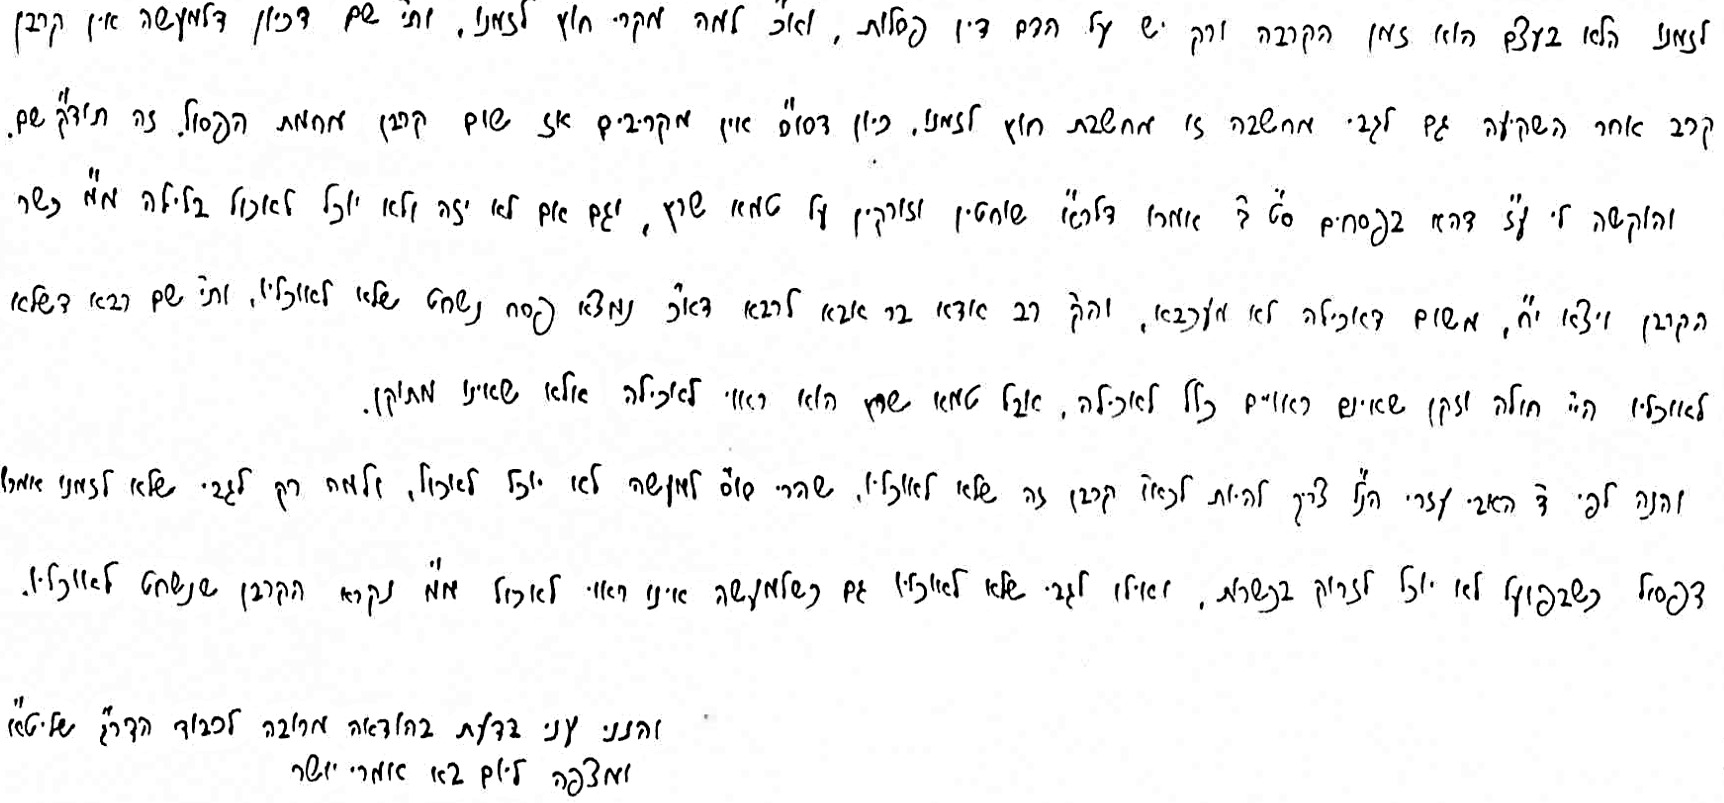 לזמנו הלא בעצם הוא זמן הקרבה ורק יש על הדם דין פסלות, וא"כ למה מקרי חוץ לזמנו, ותי' שם דכיון דלמעשה אין קרבן
קרב אחר השקיעה גם לגבי מחשבה זו מחשבת חוץ לזמנו, כיון דסו"ס אין מקריבים אז שום קרבן מחמת הפסול. זה תודק"ש שם.
והוקשה לי עפ"ז דהא בפסחים ס"ט ב' אמרו דלר"א שוחטין וזורקין על טמא שרץ, וגם אם לא יזה ולא יוכל לאכול בלילה מ"מ כשר
הקרבן ויצא י"ח, משום דאכילה לא מעכבא, והק' רב אדא בר אבא לרבא דא"כ נמצא פסח נשחט שלא לאוכליו, ותי' שם רבא דשלא
לאוכליו היי' חולה וזקן שאינם ראויים כלל לאכילה, אבל טמא שרץ הוא ראוי לאכילה אלא שאינו מתוקן.
והנה לפי ד' האבי עזרי הנ"ל צריך להיות לכאו' קרבן זה שלא לאוכליו, שהרי סו"ס למעשה לא יוכל לאכול, ולמה רק לגבי שלא לזמנו אמרו
דפסול כשבפועל לא יוכל לזרוק בכשרות, ואילו לגבי שלא לאוכליו גם כשלמעשה אינו ראוי לאכול מ"מ נקרא הקרבן שנשחט לאוכליו.
והנני עני בדעת בהודאה מרובה לכבוד הדר"ג שליט"א
ומצפה ליום בא אמרי יושר